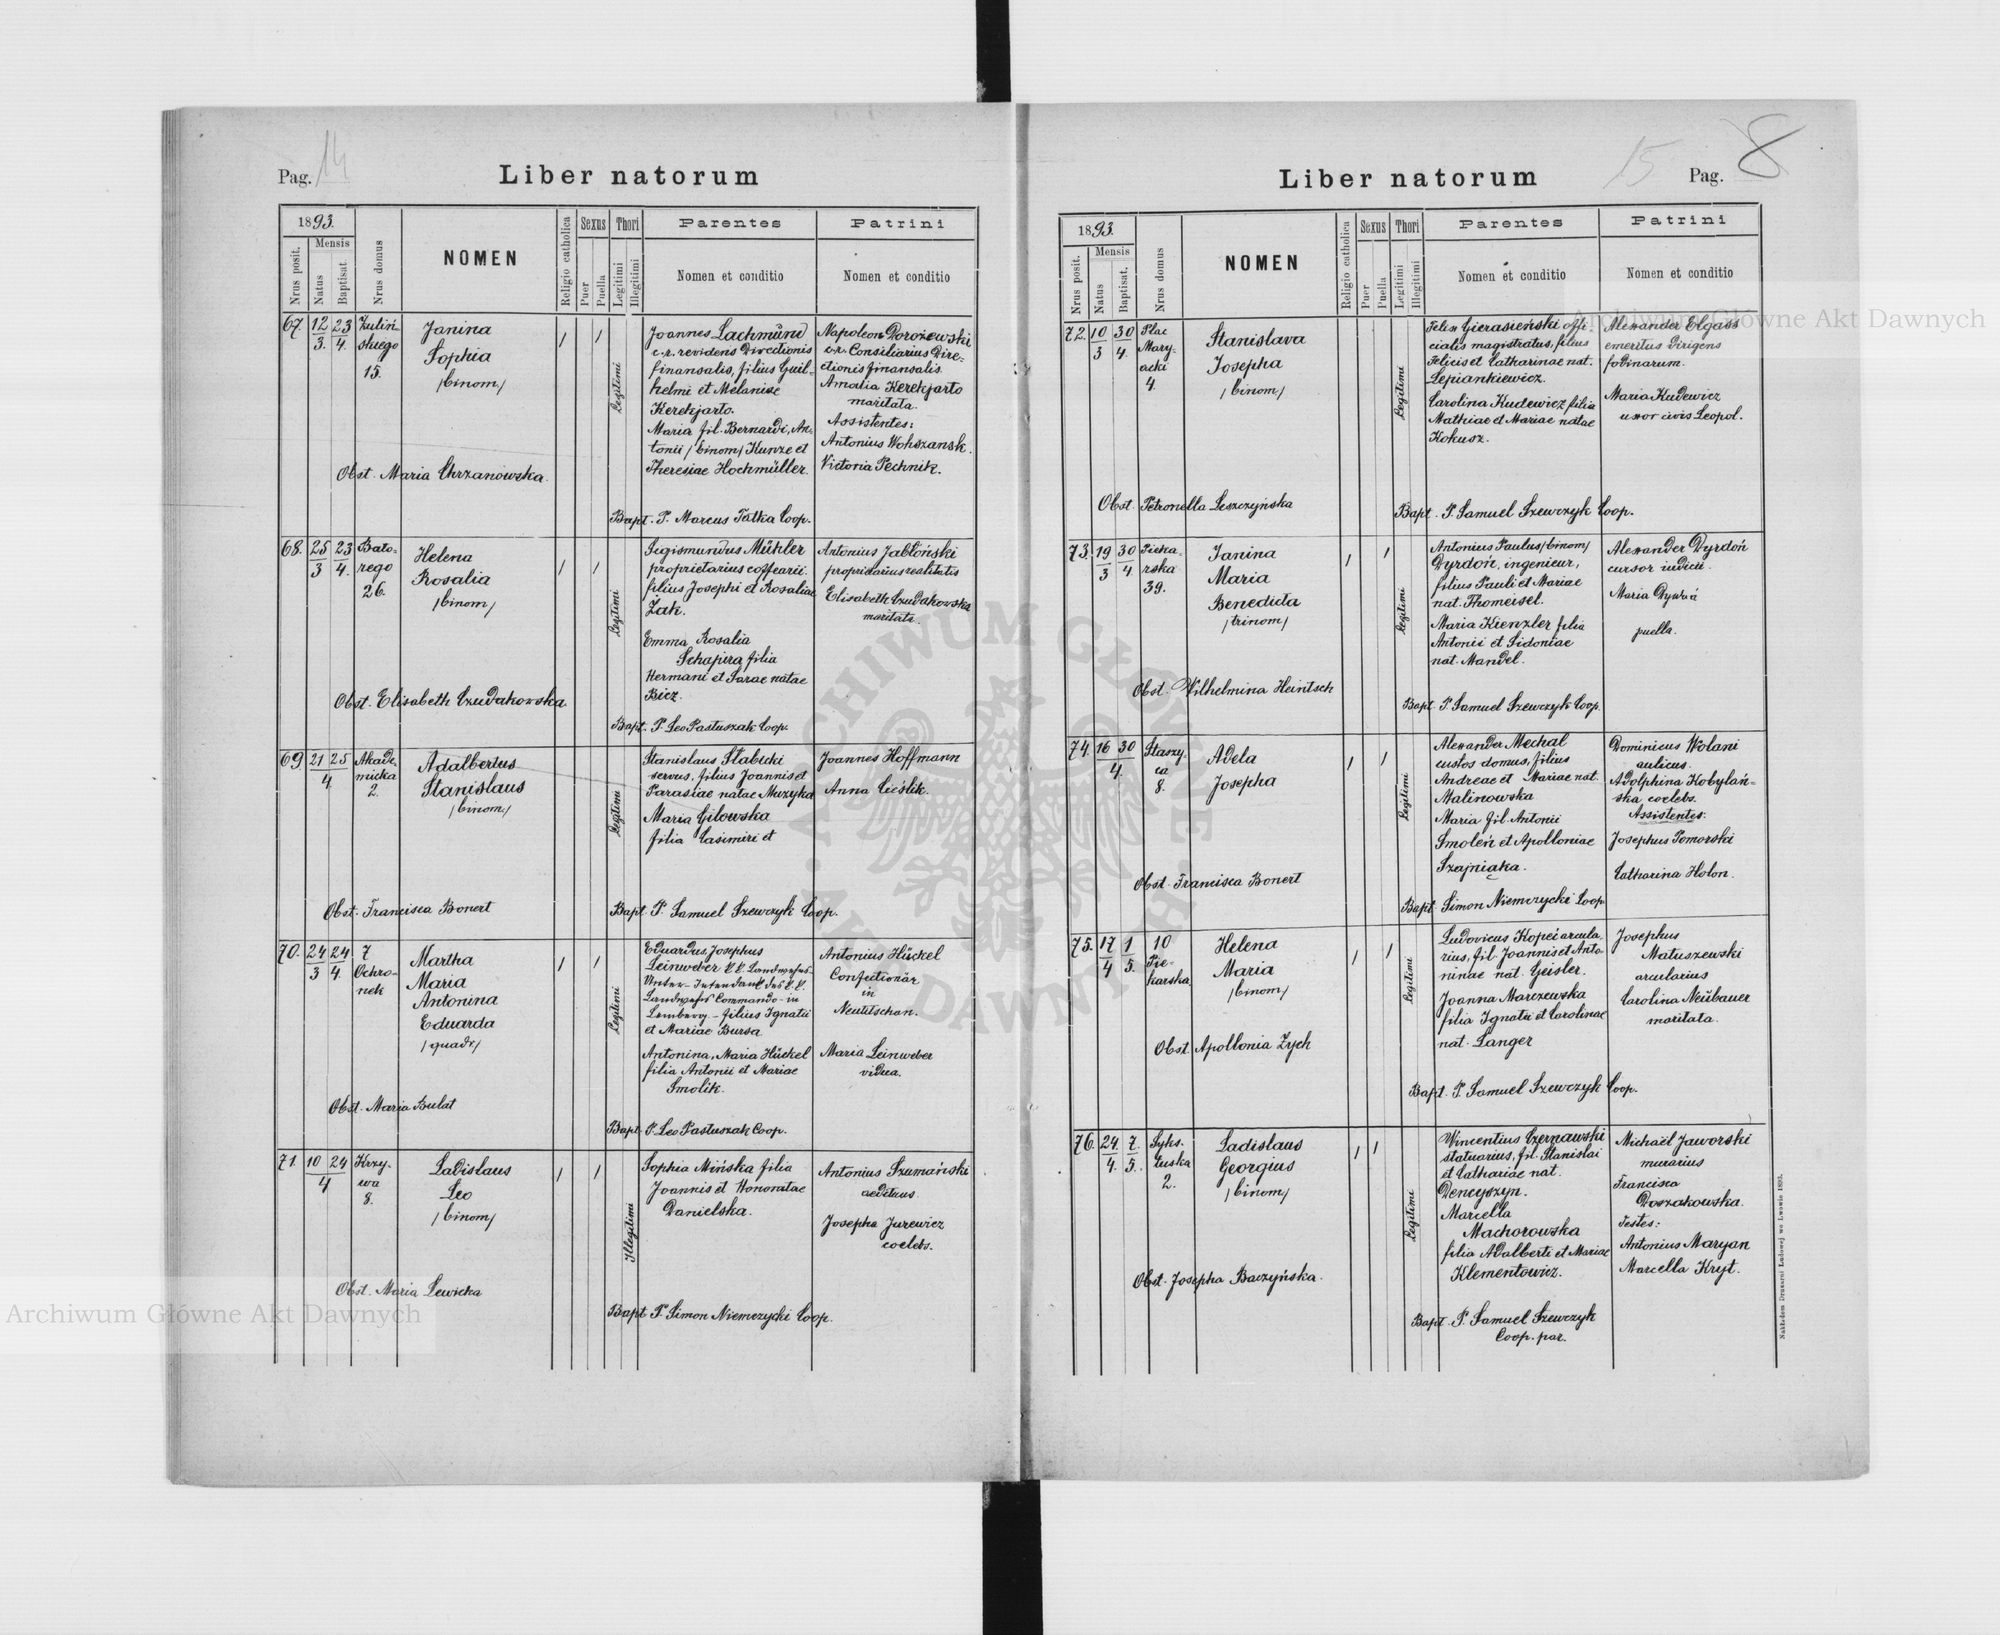 Pag. 14
Liber natorum
1893.
Nrus posit.
Mensis
Natus
Baptisat.
Nrus domus
NOMEN
Religio catholica
Sexus
Puer
Puella
Thori
Legitimi
Illegitimi
Parentes
Nomen et conditio
Patrini
Nomen et conditio
67. 12/3. 23/4.
Zuliń-
skiego
15.
Janina
Sophia
/binom/
Legitimi
Joannes Lachmünd
c.r. revidens Directionis
finansalis, filius Guil-
helmi et Melaniae
Kerekjarto.
Maria fil. Bernardi, An-
tonii /binom/ Kunze et
Theresiae Hochmüller.
Napoleon Dorożewski
c.r. Consiliarius Dire-
ctionis finansalis.
Amalia Kerekjarto
maritata.
Assistentes:
Antonius Wohszansk.
Victoria Pechnik.
Obst. Maria Chrzanowska.
Bapt. P. Marcus Tatka Coop.
68. 25/3 23/4.
Bato-
rego
26.
Helena
Rosalia
/binom/
Legitimi
Sigismundus Mühler
proprietarius coffearii.
filius Josephi et Rosaliae
Żak.
Emma Rosalia
Schapira filia
Hermani et Sarae natae
Bicz.
Antonius Jabłoński
proprietarius realitatis
Elisabeth Czudakowska
maritata.
Obst. Elisabeth Czudakowska.
Bapt. P. Leo Pastuszak Coop.
69 21 25/4
Akade-
micka
2.
Adalbertus
Stanislaus
/binom/
Legitimi
Stanislaus Słabicki
servus, filius Joannis et
Parasiae natae Muzyka
Maria Gilowska
filia Casimiri et
Joannes Hoffmann
Anna Cieślik.
Obst. Francisca Bonert
Bapt. P. Samuel Szewczyk Coop.
70. 24/3 24/4
7
Ochro-
nek
Martha
Maria
Antonina
Eduarda
/quadr/
Legitimi
Eduardus, Josephus
Leinweber k.k. Landwehr-
Unter-Intendant des k.k.
Landwehr Commando-in
Lemberg. - filius Ignatii
et Mariae Bursa
Antonina, Maria Hückel
filia Antonii et Mariae
Smolik.
Antonius Hückel
Confectionär
in
Neutitschan.
Maria Leinweber
vidua.
Obst. Maria Bulat
Bapt. P. Leo Pastuszak Coop.
71. 10 24/4
Krzy-
wa
8.
Ladislaus
Leo
/binom/
Illegitimi
Sophia Mińska filia
Joannis et Honoratae
Danielska.
Antonius Szumański
aedituus.
Josepha Jurewicz
coelebs.
Obst. Maria Lewicka
Bapt P. Simon Niemczycki Coop.
15 Pag. 8
Liber natorum
1893.
Nrus posit.
Mensis
Natus
Baptisat.
Nrus domus
NOMEN
Religio catholica
Sexus
Puer
Puella
Thori
Legitimi
Illegitimi
Parentes
Nomen et conditio
Patrini
Nomen et conditio
72. 10/3 30/4.
Plac
Mary-
acki
4.
Stanislava
Josepha
/binom/
Legitimi
Felix Gierasieński offi-
cialis magistratus, filius
Felicis et Catharinae nat.
Lepiankiewicz.
Carolina Kudewicz filia
Mathiae et Mariae natae
Kokusz.
Alexander Elgass
emeritus dirigens
fodinarum.
Maria Kudewicz
uxor civis Leopol.
Obst. Petronella Leszczyńska
Bapt. P. Samuel Szewczyk Coop.
73. 19/3 30/4
Pieka-
rska
39.
Janina
Maria
Benedicta
/trinom/
Legitimi
Antonius Paulus /binom/
Dyrdoń, ingenieur,
filius Pauli et Mariae
nat. Thomeisel.
Maria Kienzler filia
Antonii et Sidoniae
nat. Mandel.
Alexander Dyrdoń
cursor iudicii.
Maria
puella.
Obst. Wilhelmina Heintsch
Bapt. P. Samuel Szewczyk Coop.
74. 16 30/4.
Staszy-
ca
8.
Adela
Josepha
Legitimi
Alexander Mechal
custos domus, filius
Andreae et Mariae nat.
Malinowska
Maria fil. Antonii
Smoleń et Apolloniae
Szajniaka.
Dominicus Wolani
aulicus.
Adolphina Kobylań-
ska coelebs.
Assistentes:
Josephus Pomorski
Catharina Holon.
Obst. Francisca Bonert
Bapt. Simon Niemczycki Coop.
75. 17/4 1/5.
10
Pie-
karska
Helena
Maria
/binom/
Legitimi
Ludovicus Kopeć arcula-
rius, fil. Joannis et Anto-
ninae nat. Geisler.
Joanna Marczewska
filia Ignatii et Carolinae
nat. Langer
Josephus
Matuszewski
arcularius
Carolina Neübauer
maritata.
Obst. Apollonia Zych
Bapt. P. Samuel Szewczyk Coop.
76. 24/4. 7/5.
Syks-
tuska
2.
Ladislaus
Georgius
/binom/
Legitimi
Vincentius Czernawski
statuarius, fil. Stanislai
et Cathariae nat.
Dencyszyn.
Marcella
Machorowska
filia Adalberti et Mariae
Klementowicz.
Michaël Jaworski
murarius
Francisca
Doszakowska.
Testes:
Antonius Maryan
Marcella Kryt.
Obst. Josepha Baczyńska.
Bapt. P. Samuel Szewczyk
Coop. par.
Nakładem Drukarni Ludowej we Lwowie 1893.
Archiwum Główne Akt Dawnych
Archiwum Główne Akt Dawnych
ARCHIWUM GŁÓWNE AKT DAWNYCH